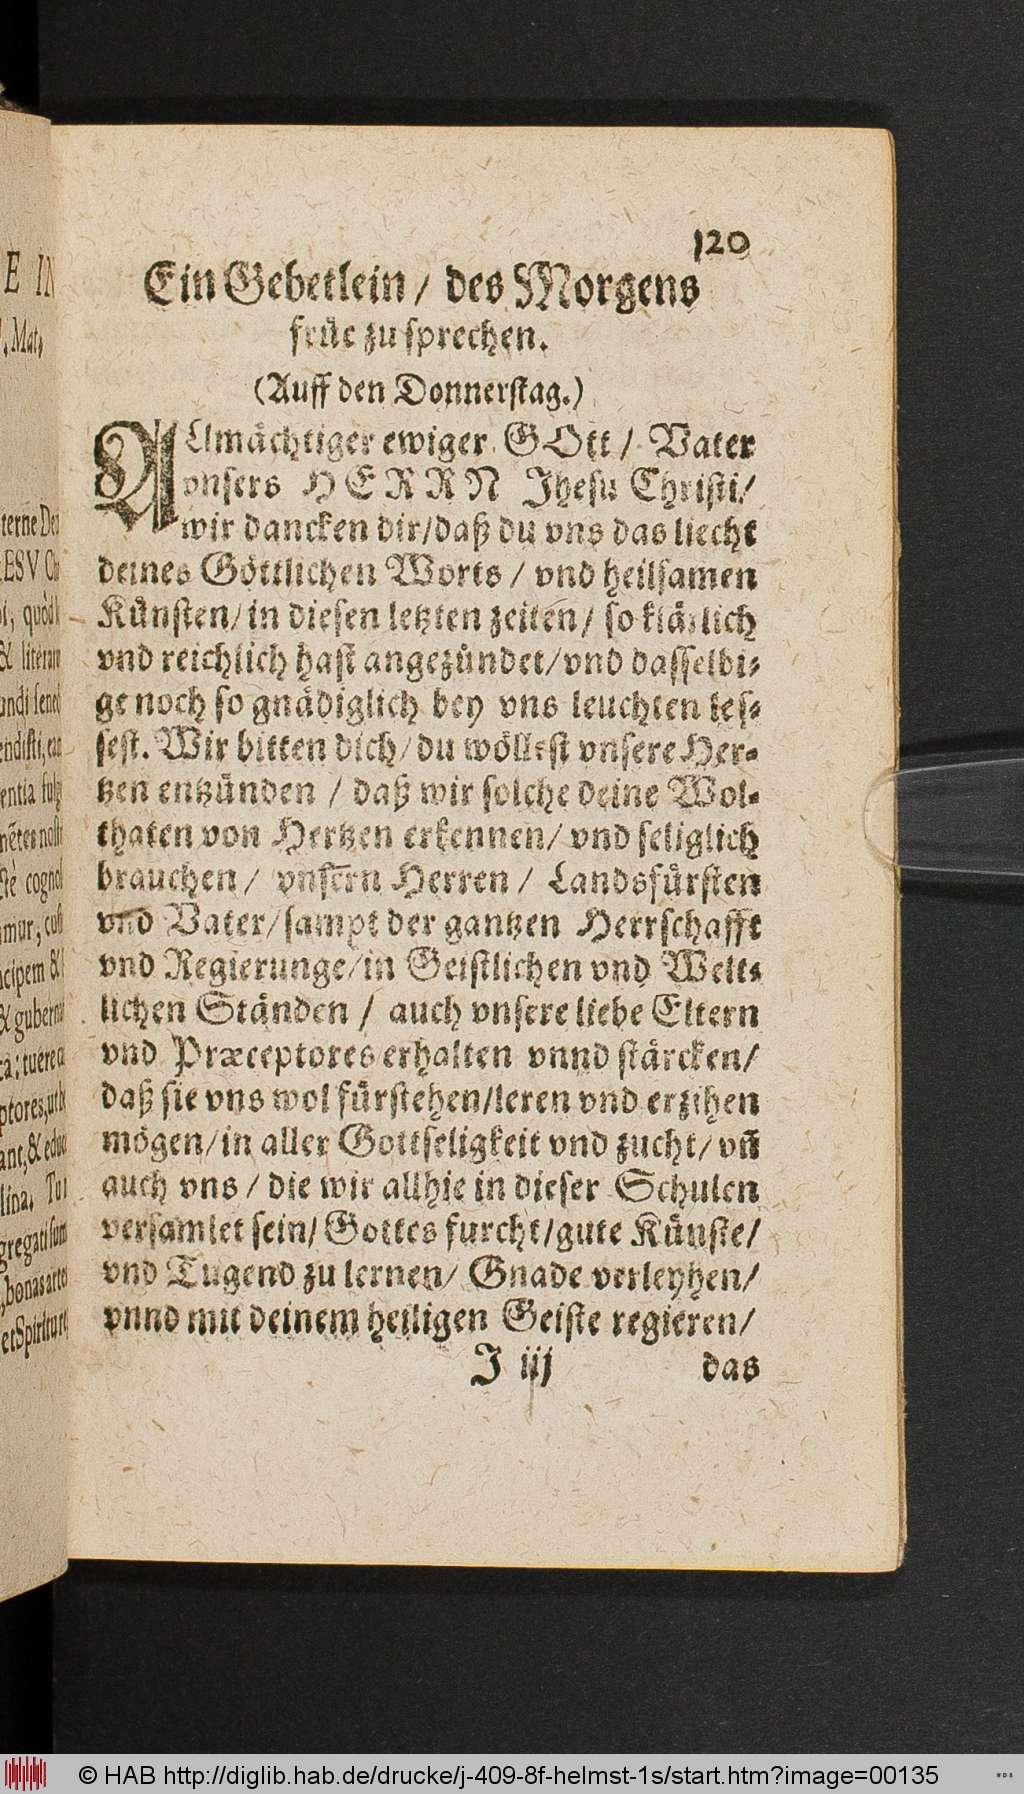 120
Ein Gebetlein / des Morgens
früe zu sprechen.
(Auff den Donnerstag.)
ALlmächtiger ewiger GOtt / Vater
vnsers HERRN Jhesu Christi /
wir dancken dir / daß du vns das liecht
deines Göttlichen Worts / vnd heilsamen
Künsten / in diesen letzten zeiten / so klärlich
vnd reichlich hast angezündet / vnd dasselbi-
ge noch so gnädiglich bey vns leuchten les-
sest. Wir bitten dich / du wöllest vnsere Her-
tzen entzünden / daß wir solche deine Wol-
thaten von Hertzen erkennen / vnd seliglich
brauchen / vnsern Herren / Landsfürsten
vnd Vater / sampt der gantzen Herrschafft
vnd Regierunge / in Geistlichen vnd Welt-
lichen Ständen / auch vnsere liebe Eltern
vnd Præceptores erhalten vnnd stärcken /
daß sie vns wol fürstehen / leren vnd erzihen
mögen / in aller Gottseligkeit vnd zucht / vn̄
auch vns / die wir allhie in dieser Schulen
versamlet sein / Gottes furcht / gute Künste /
vnd Tugend zu lernen / Gnade verleyhen /
vnnd mit deinem heiligen Geiste regieren /
J iij das
E IN
Mat.
terne De
ESV
quòd
&
cogno
mur,
cipem &
& guber
tuere
ptores, ut
ant, &
lina. Tu
gregati sum
bonas artes
et Spiritu
© HAB http://diglib.hab.de/drucke/j-409-8f-helmst-1s/start.htm?image=00135